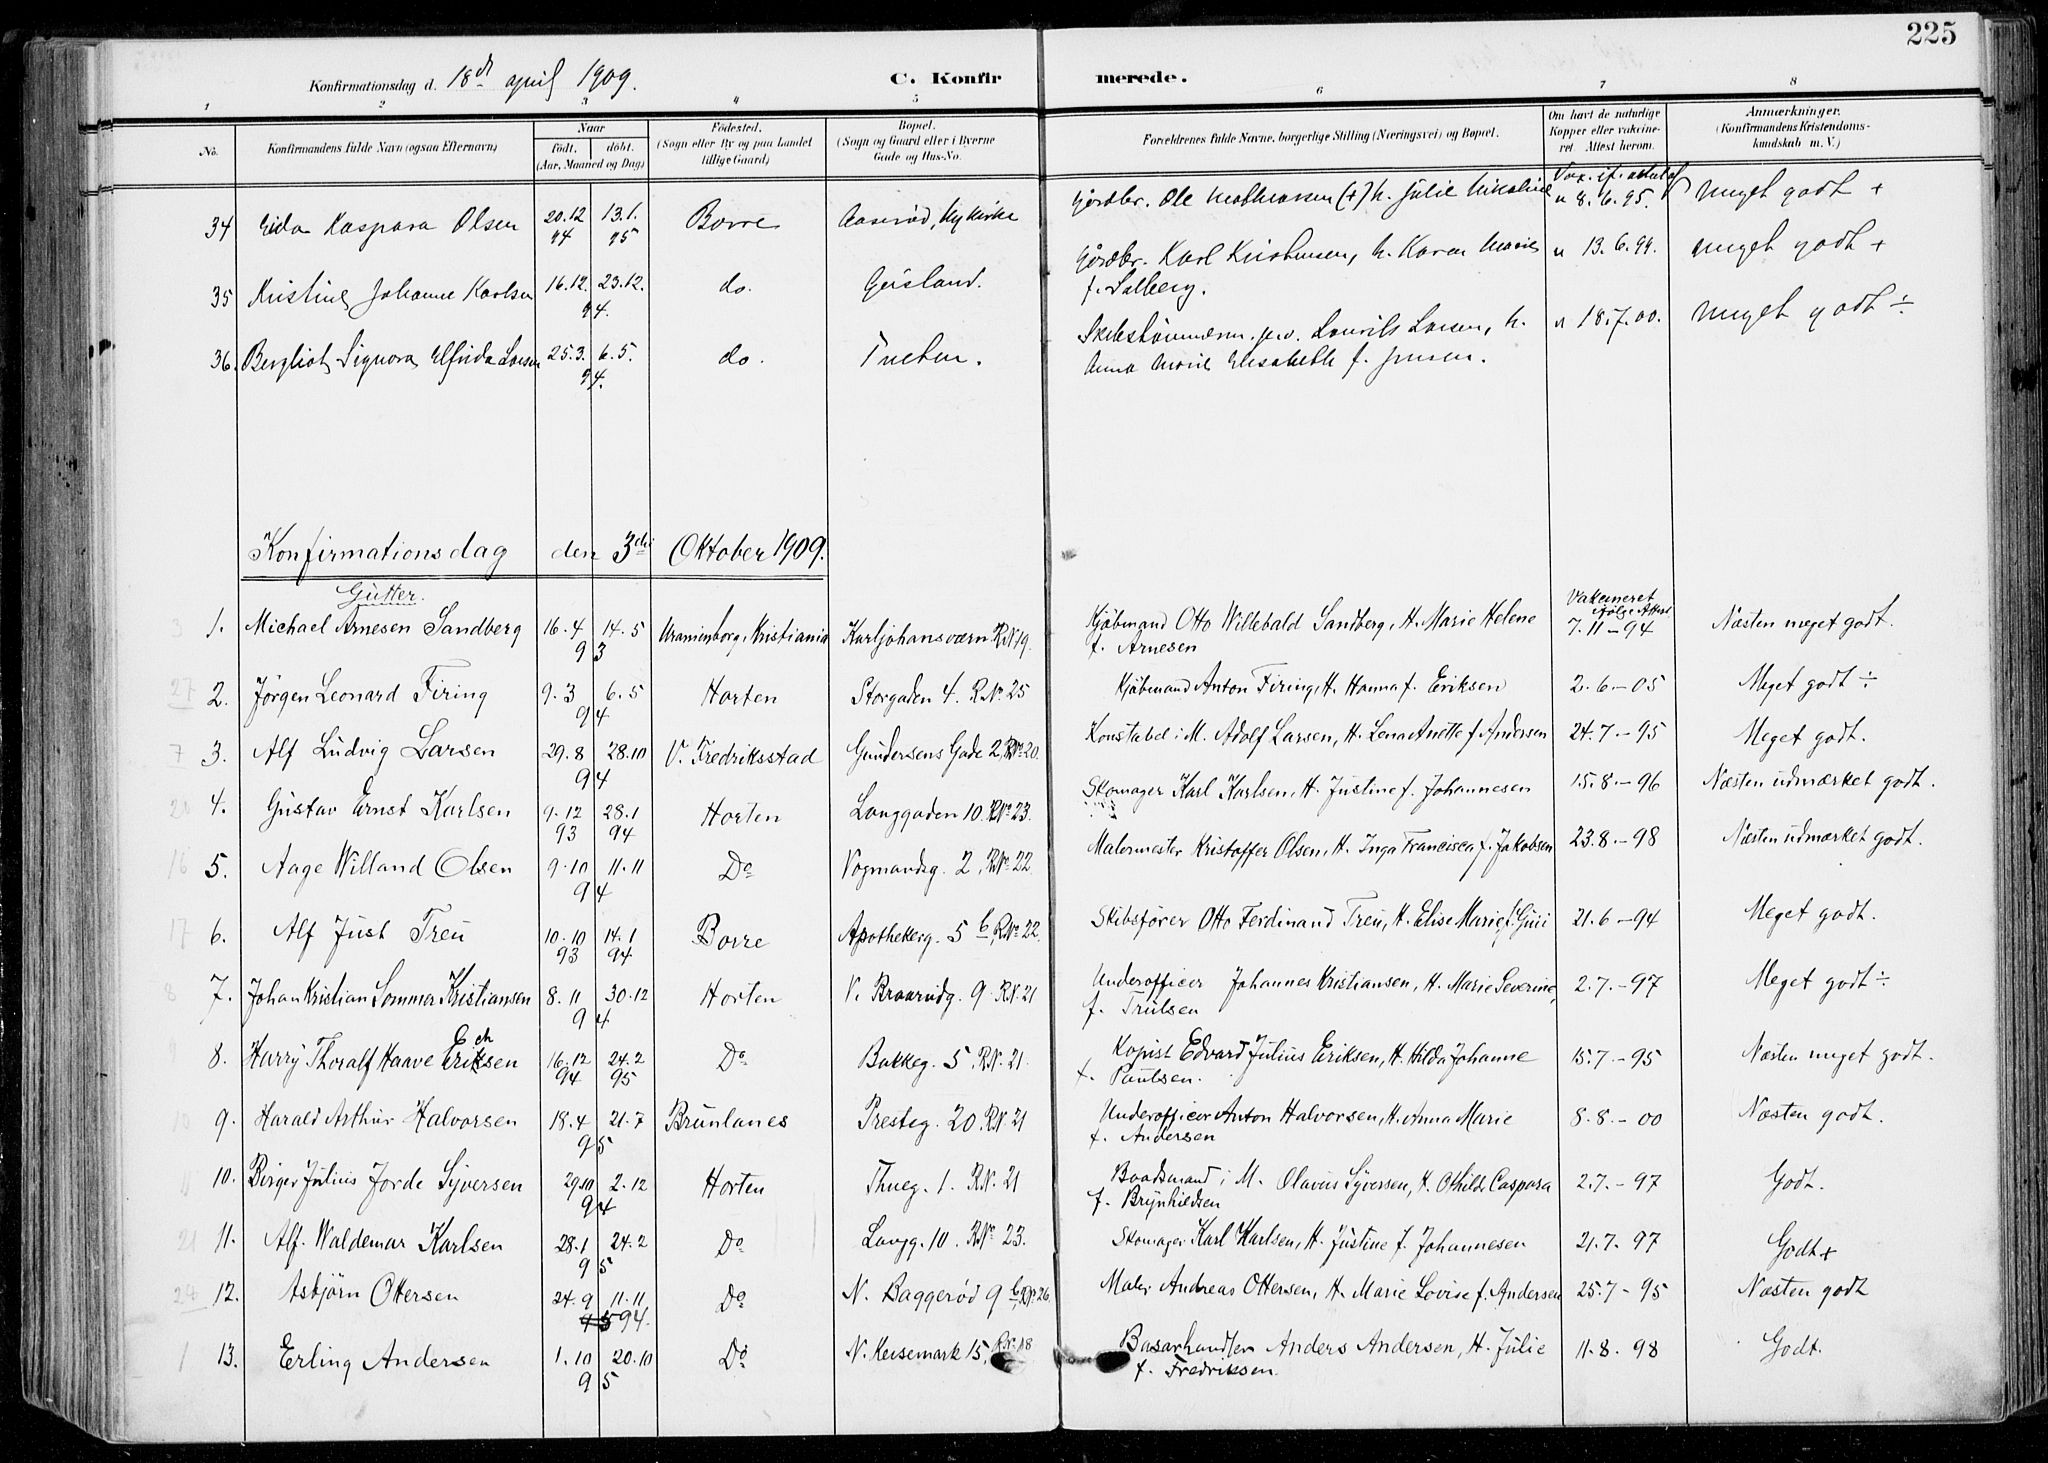 225
Konfirmationsdag d. 18de april 1909. C. Konfirmerede.
1 2 3 4 5 6 7 8
No. Konfirmandens fulde Navn (ogsaa Efternavn) Naar født. døbt. (Aar, Maaned og Dag) Fødested. (Sogn eller By og paa Landet tillige Gaard) Bopæl. (Sogn og Gaard eller i Byerne Gade og Hus-No. Forældrenes fulde Navne, borgerlige Stilling (Næringsvei) og Bopæl. Om havt de naturlige Kopper eller vakcineret. Attest herom. Anmærkninger. (Konfirmandens Kristendomskundskab m. V.)
34 Kaspara Olsen 20.12 94 13.1. 95 Borre Aaserød, Nykirke Gårdbr. Ole Mathiassen (+) h. Julie Nikoline Vax. if. attest af 8.6.95. Meget godt +
35 Kristine Johanne Karlsen 16.12. 23.12. 94. do. Gårdbr. Karl Kristensen, h. Karen Marie f. Solberg. " 13.6.99. meget godt +
36. Bergliot Signora Elfrida Larsen 25.3. 6.5. 94. do. Skibstømmerm. Laurits Larsen, h. Anna Marie Elisabeth f. Jensen. " 18.7.00. meget godt ÷
Konfirmationsdag den 3die Oktober 1909.
Gutter.
1. Michael Arnesen Sandberg 16.4 14.5 93 Uranienborg, Kristiania Karljohansværn R.N. 19. Kjøbmand Otto Willebald Sandberg, H. Marie Helene f. Arnesen Vakcineret ifølge Attest 7.11-94 Næsten meget godt.
2. Jørgen Leonard Firing 9.3 6.5 94 Horten Storgaden 4. R.No. 25 Kjøbmand Anton Firing, H. Hanna f. Eriksen 2.6.-05 Meget godt ÷
3. Alf Ludvig Larsen 29.8 28.10 94 V. Fredriksstad Gundersens Gade 2, R.No. 20. Konstabel i M. Adolf Larsen, H. Lena Anette f. Andersen 24.7.-95 Meget godt.
4. Gustav Ernst Karlsen 9.12 93 28.1 94 Horten Langgaden 10. R.No. 23. Skomager Karl Karlsen, H. Justine f. Johannesen 15.8.-96 Næsten udmærket godt.
5. Aage Willand Olsen 9.10 11.11 94 Do Vogmandsg. 2, R.No. 22. Malermester Kristoffer Olsen, H. Inga Francisca f. Jakobsen 23.8.-98 Næsten udmærket godt.
6. Alf Just Treu 10.10 93 14.1 94 Borre Apothekerg. 5 b, R.No. 22. Skibsfører Otto Ferdinand Treu, H. Elise Marie f. 21.6-94 Meget godt.
7. Johan Kristian Sommer Kristiansen 8.11 30.12 94 Horten V. Braarudg. 9. R.N. 21 Underofficer Johannes Kristiansen, H. Marie Severine, f. Trulsen 2.7.-97 Meget godt ÷
8. Harry Thoralf Haave Eriksen 16.12 94 24.2 95 Do Bakkeg. 5, R.N. 21. Kopist Edvard Julius Eriksen, H. Hilda Johanne f. Paulsen. 15.7.-95 Næsten meget godt.
9. Harald Arthur Halvorsen 18.4 21.7 95 Brunlanes Presteg. 20. R.N. 21 Underofficer Anton Halvorsen, H. Anna Marie f. Andersen 8.8.-00 Næsten godt.
10. Birger Julius Jorde Syversen 29.10 2.12 94 Horten Thueg. 1. R.N. 21 Baadsmand i M. Olavus Syversen, H. Othilde Caspara f. Brynhildsen 2.7.-97 Godt.
11. Alf. Waldemar Karlsen 28.1 24.2 95 Do Langg. 10. R.No. 23. Skomager Karl Karlsen, H. Justine f. Johannesen 21.7.97 Godt +
12. Asbjørn Ottersen 24.9 11.11 94. Do N. Baggerød 9 b, R.No. 26. Maler Andreas Ottersen, H. Marie Lovise f. Andersen 25.7-95 Næsten godt
13. Erling Andersen 1.10 20.10 95 Do N. Keisemark 15, R.N. 18 Basarhandler Anders Andersen, H. Julie f. Fredriksen. 11.8.98 Godt.